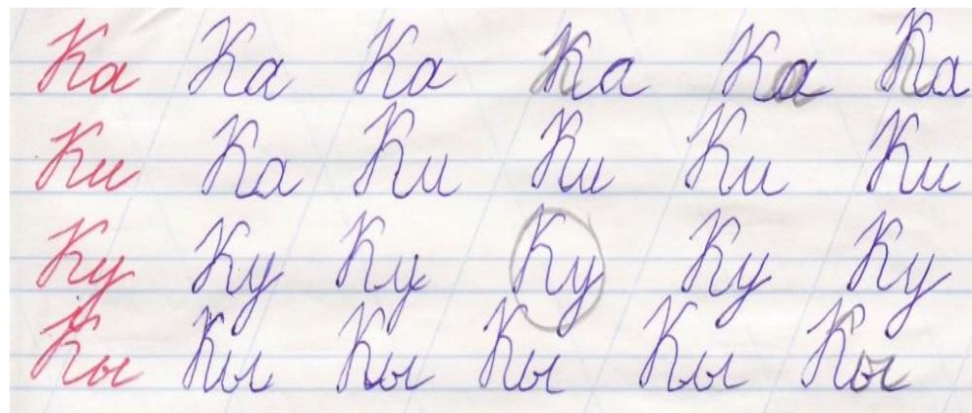 Ка Ка Ка Ка Ка Ка
Ки Ка Ки Ки Ки Ки
Ку Ку Ку Ку Ку Ку
Кы Кы Кы Кы Кы Кы